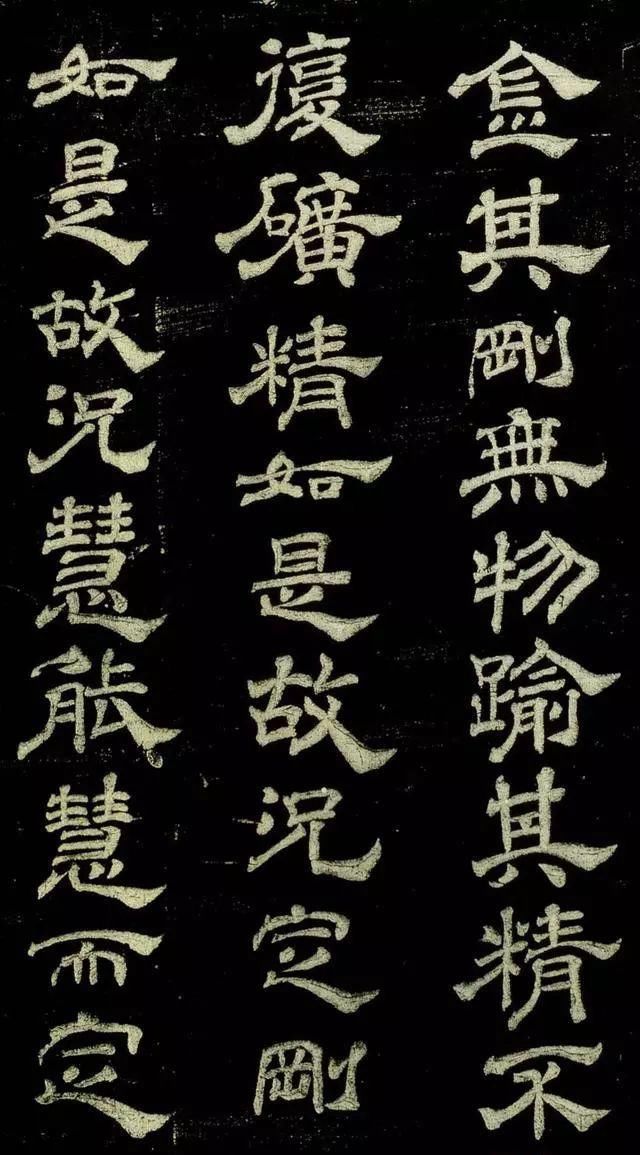 金其剛無物踰其精不
復礦精如是故況定剛
如是故況慧能慧而定